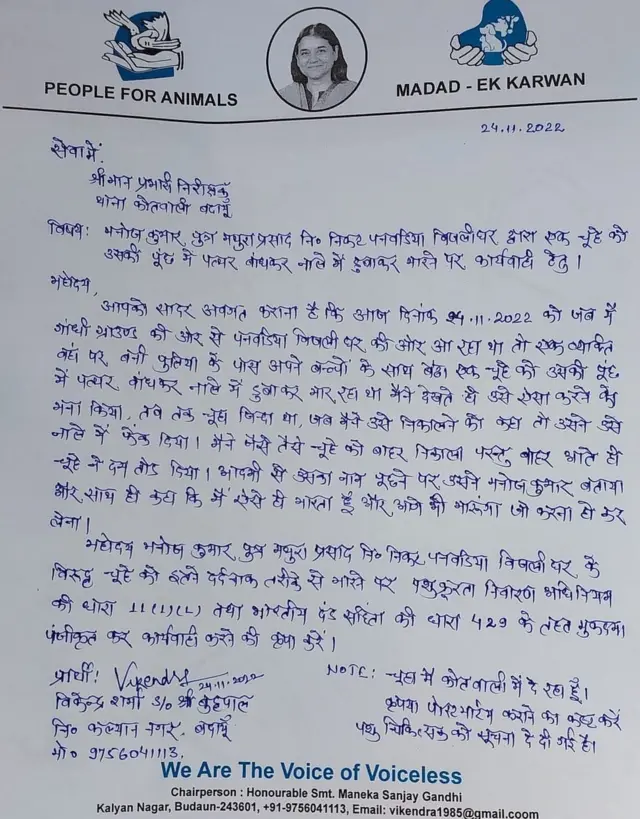 PEOPLE FOR ANIMALS
MADAD - EK KARWAN
24.11.2022
सेवा में,
श्रीमान प्रभारी निरीक्षक
थाना कोतवाली बदायूँ
विषय: मनोज कुमार, पुत्र मथुरा प्रसाद नि० निकट पनवडिया बिजलीघर द्वारा एक चूहे को
उसकी पूंछ में पत्थर बांधकर नाले में डुबाकर मारने पर कार्यवाही हेतु।
महोदय,
आपको सादर अवगत कराना है कि आज दिनांक 24.11.2022 को जब मैं
गांधी ग्राउण्ड की ओर से पनवडिया बिजली घर की ओर आ रहा था तो एक व्यक्ति
वहां पर बनी पुलिया के पास अपने बच्चों के साथ बैठा एक चूहे को उसकी पूंछ
में पत्थर बांधकर नाले में डुबाकर मार रहा था मैंने देखते ही उसे ऐसा करने को
मना किया, तब तक चूहा जिन्दा था, जब मैंने उसे निकालने को कहा तो उसने उसे
नाले में फेंक दिया। मैंने जैसे तैसे चूहे को बाहर निकाला परन्तु बाहर आते ही
चूहे ने दम तोड दिया। आदमी से उसका नाम पूछने पर उसने मनोज कुमार बताया
और साथ ही कहा कि मैं ऐसे ही मारता हूँ और आगे भी मारूंगा जो करना हो कर
लेना।
महोदय मनोज कुमार, पुत्र मथुरा प्रसाद नि० निकट पनवडिया बिजली घर के
विरूद्ध चूहे को इतने दर्दनाक तरीके से मारने पर पशु क्रूरता निवारण अधिनियम
की धारा 11(1)(L) तथा भारतीय दंड संहिता की धारा 429 के तहत मुकदमा
पंजीकृत कर कार्यवाही करने की कृपा करें।
प्रार्थी: Vikendra 24.11.2022
विकेन्द्र शर्मा S/o श्री
नि० कल्यान नगर, बदायूँ
मो० 9756041113.
NOTE: चूहा मैं कोतवाली में दे रहा हूँ।
कृपया पोस्टमार्टम कराने का कष्ट करें
पशु चिकित्सक को सूचना दे दी गई है।
We Are The Voice of Voiceless
Chairperson : Honourable Smt. Maneka Sanjay Gandhi
Kalyan Nagar, Budaun-243601, +91-9756041113, Email: vikendra1985@gmail.com